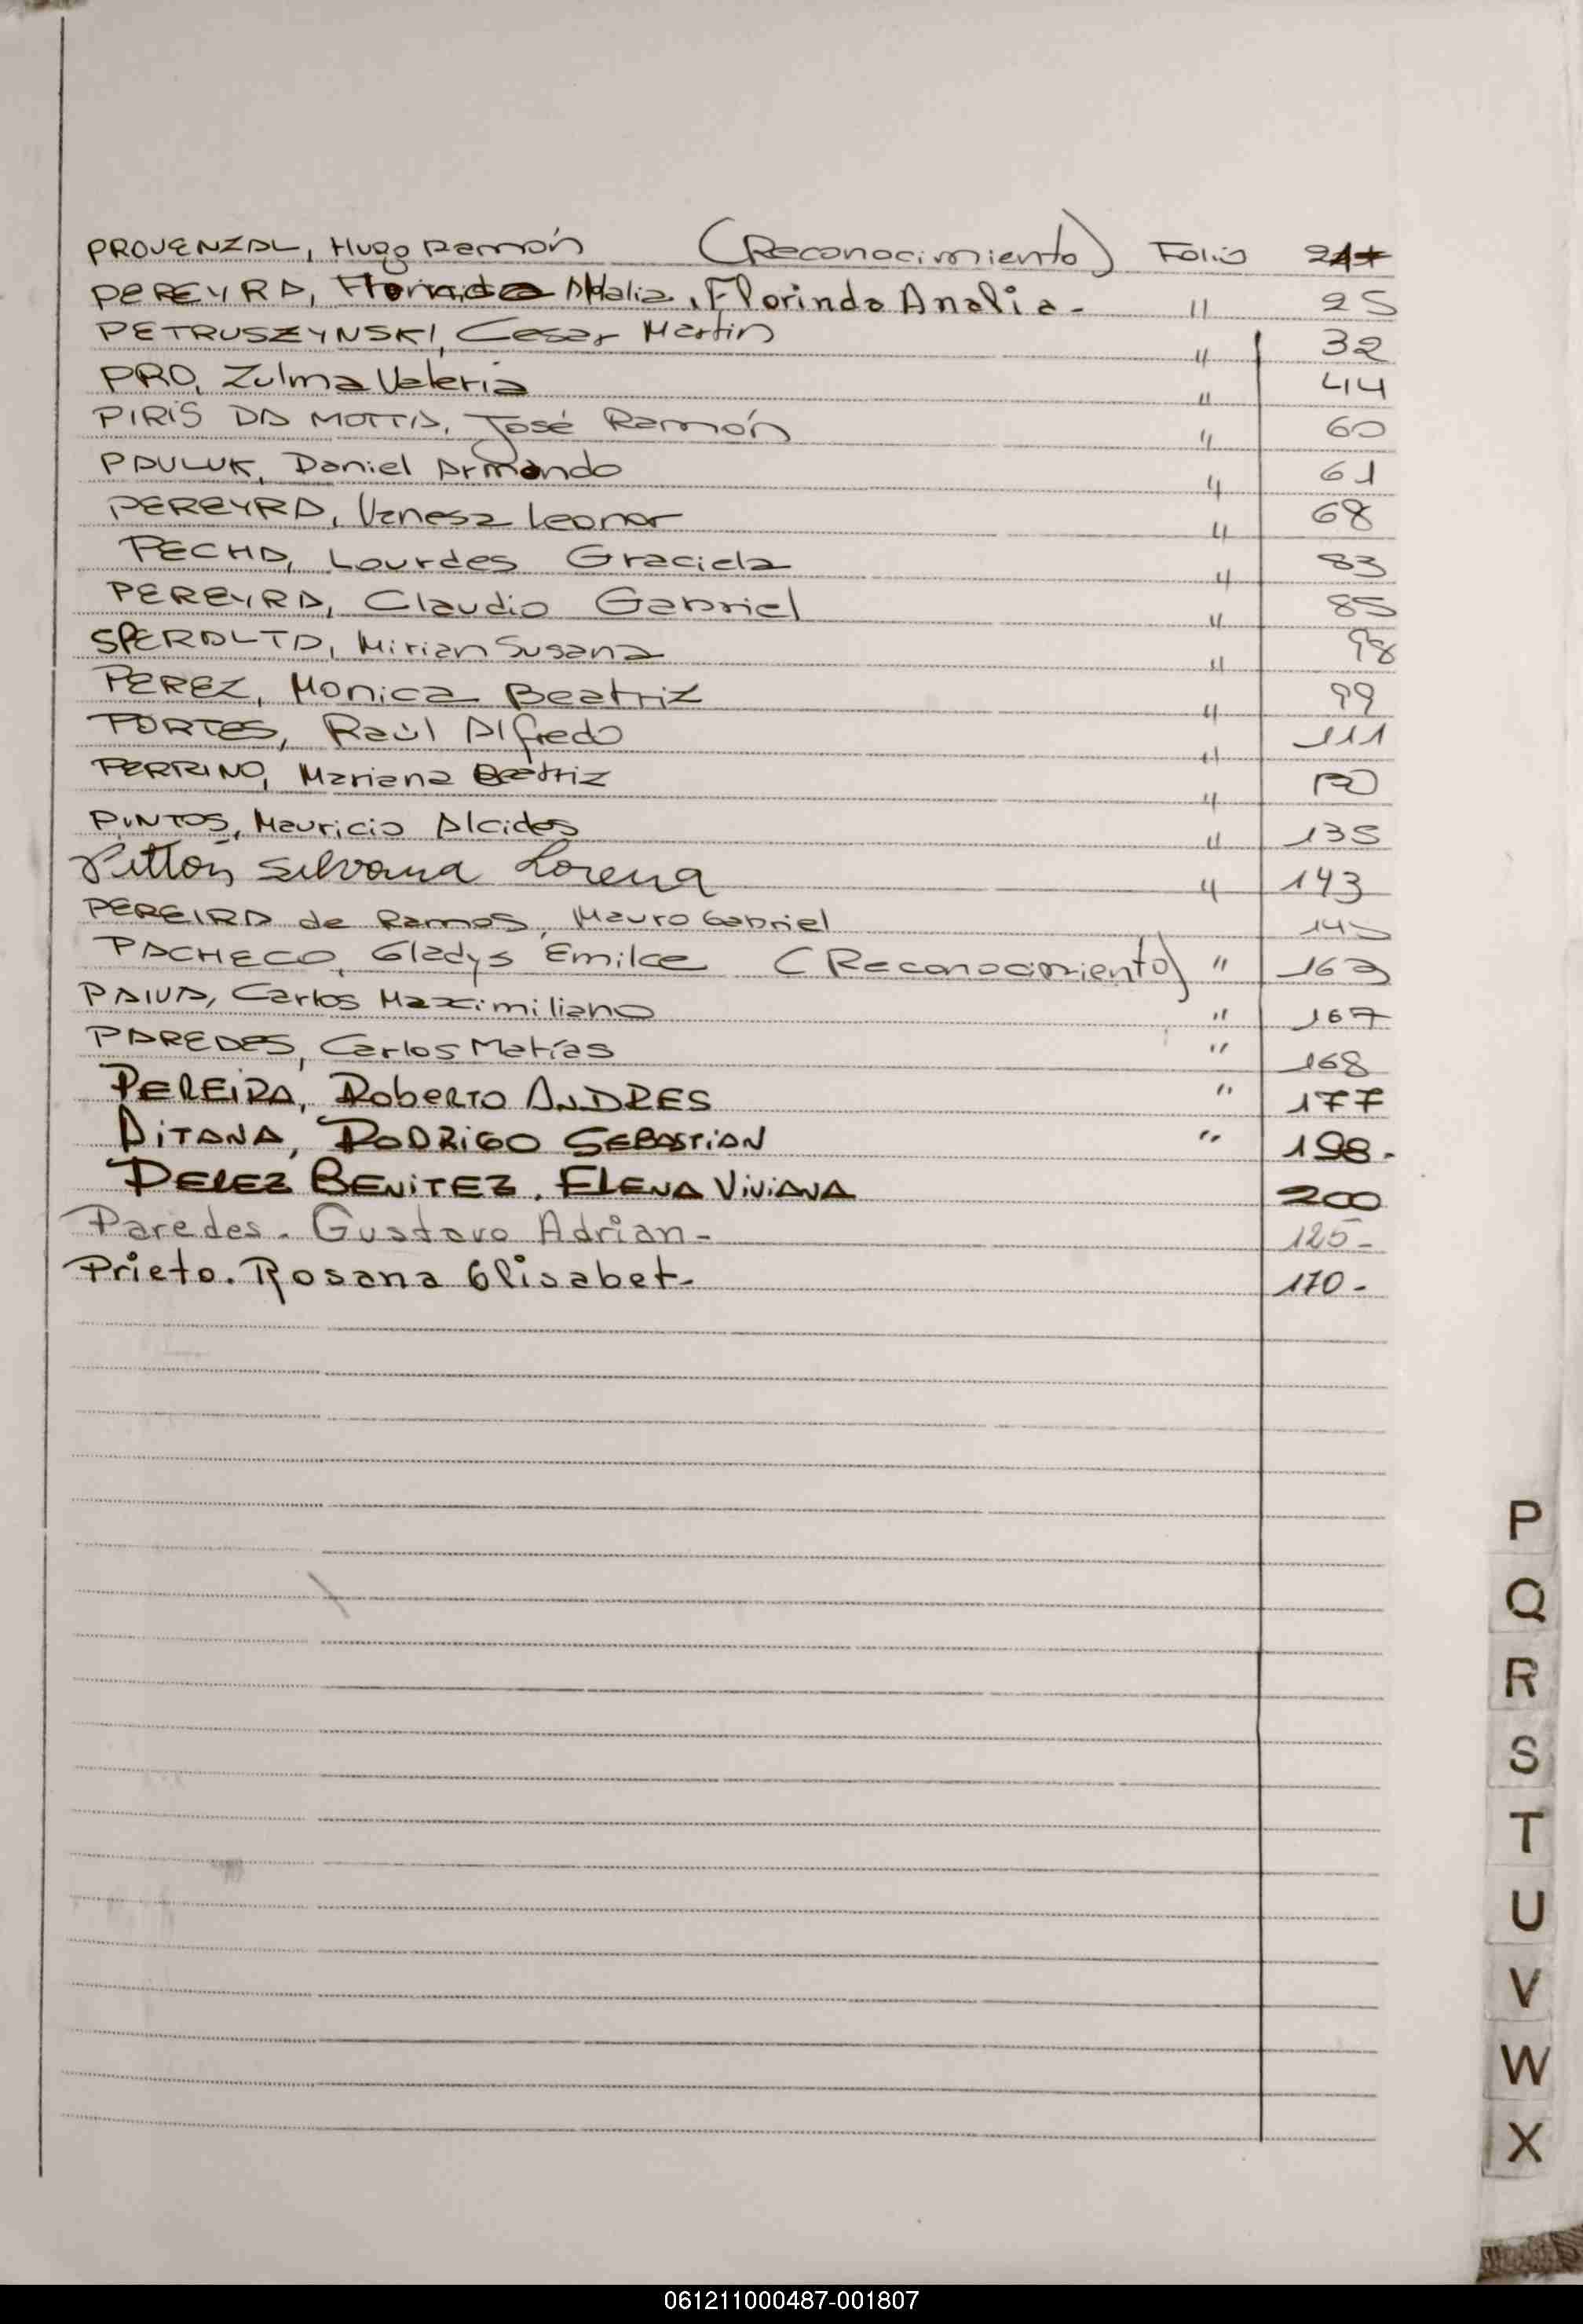 PROVENZAL, Hugo Ramón (Reconocimiento) Folio
PEREYRA, Analia, Florinda Analia. " 25
PETRUSZYNSKI, Cesar Martin " 32
PRO, Zulma Valeria " 44
PIRIS DA MOTTA, José Ramón " 60
PAULUK, Daniel Armando " 61
PEREYRA, Vanesa Leonor " 68
PECHA, Lourdes Graciela " 83
PEREYRA, Claudio Gabriel " 85
SPERALTA, Mirian Susana " 98
PEREZ, Monica Beatriz " 99
PORTES, Raúl Alfredo " 111
PERRINO, Mariana Beatriz "
PINTOS, Mauricio Alcides " 135
Pitton Silvana Lorena " 143
PEREIRA de Ramos, Mauro Gabriel 145
PACHECO, Gladys Emilce (Reconocimiento) " 163
PAIVA, Carlos Maximiliano " 167
PAREDES, Carlos Matías " 168
PEREIRA, Roberto ANDRES " 177
PITANA, RODRIGO SEBASTIAN " 198.
PEREZ BENITEZ. ELENA VIVIANA 200
Paredes. Gustavo Adrian- 125-
Prieto. Rosana Elisabet- 170-
P
Q
R
S
T
U
V
W
X
061211000487-001807